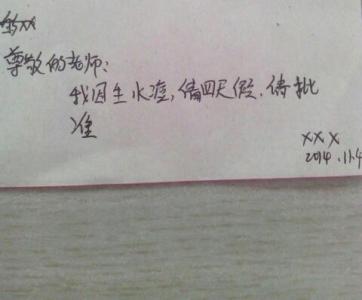 尊敬的老师:
我因生水痘,请四天假.待批
准
XXX
2014.11.4